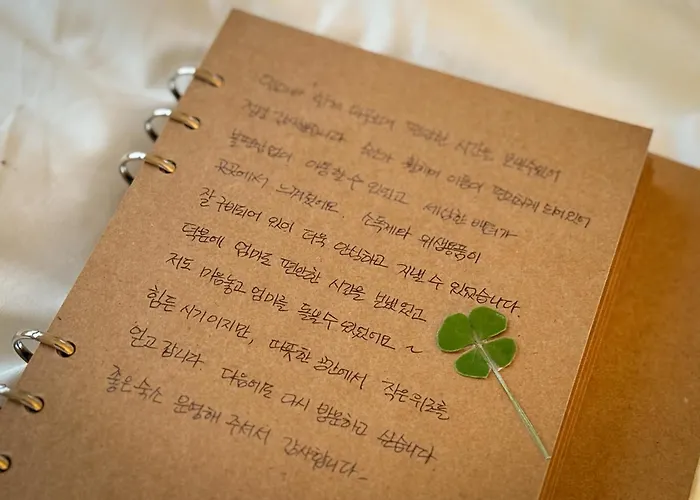 함께 편안한 시간을 보낼수있어
정말 감사했습니다. 숙소가 휠체어 이용이 편리하게 되어있어
불편함없이 이동할 수 있었고 세심한 배려가
곳곳에서 느껴졌어요. 소독제와 위생용품이
잘 구비되어 있어 더욱 안심하고 지낼 수 있었습니다.
덕분에 엄마도 편안한 시간을 보냈었고
저도 마음놓고 엄마를 돌볼 수 있었어요~
힘든 시기이지만, 따뜻한 공간에서 작은위로를
얻고 갑니다. 다음에도 다시 방문하고 싶습니다
좋은숙소 운영해 주셔서 감사합니다-